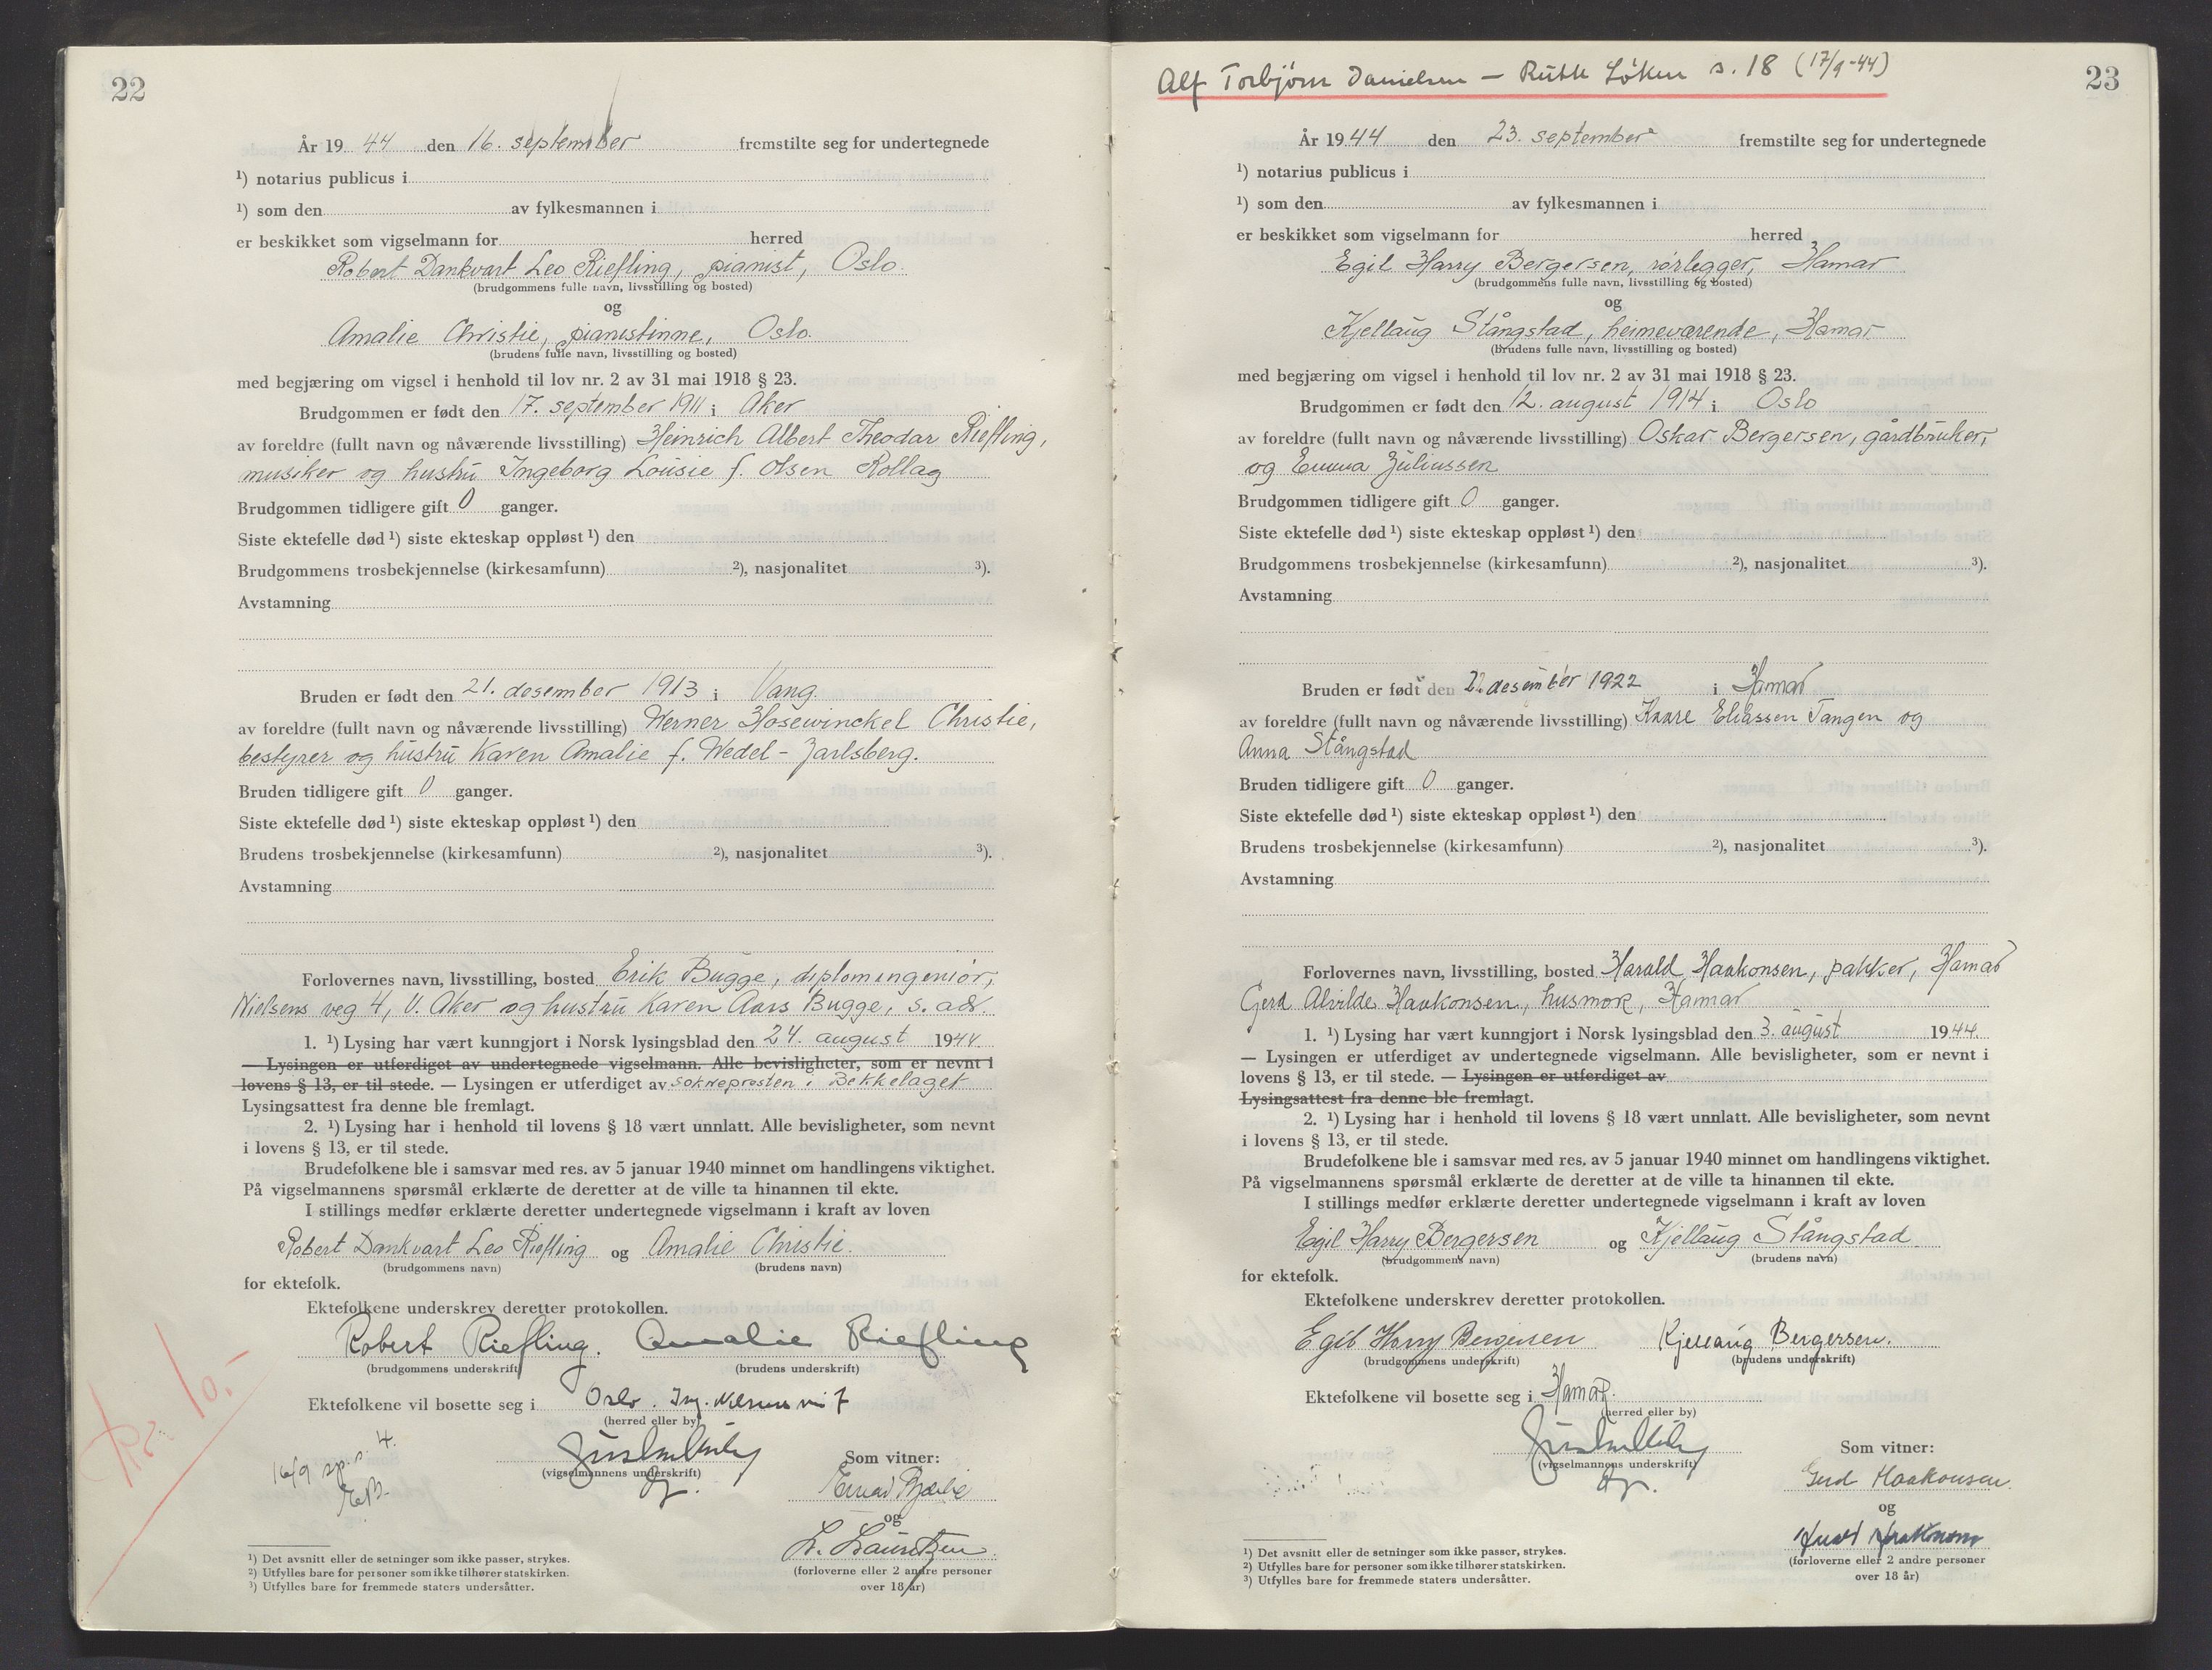 22
År 19 44 den 16. september fremstilte seg for undertegnede
¹) notarius publicus i
¹) som den av fylkesmannen i
er beskikket som vigselmann for herred
Robert Dankvart Leo Riefling, pianist, Oslo.
(brudgommens fulle navn, livsstilling og bosted)
og
Amalie Christie, pianistinne, Oslo.
(brudens fulle navn, livsstilling og bosted)
med begjæring om vigsel i henhold til lov nr. 2 av 31 mai 1918 § 23.
Brudgommen er født den 17. september 1911 i Aker
av foreldre (fullt navn og nåværende livsstilling) Heinrich Albert Theodar Riefling,
musiker og hustru Ingeborg Lousie f. Olsen Rollag
Brudgommen tidligere gift 0 ganger.
Siste ektefelle død ¹) siste ekteskap oppløst ¹) den
Brudgommens trosbekjennelse (kirkesamfunn) ²), nasjonalitet ³).
Avstamning
Bruden er født den 21. desember 1913 i Vang.
av foreldre (fullt navn og nåværende livsstilling) Werner Hosewinckel Christie,
bestyrer og hustru Karen Amalie f. Wedel-Jarlsberg.
Bruden tidligere gift 0 ganger.
Siste ektefelle død ¹) siste ekteskap oppløst ¹) den
Brudens trosbekjennelse (kirkesamfunn) ²), nasjonalitet ³).
Avstamning
Forlovernes navn, livsstilling, bosted Erik Bugge, diplomingeniør,
Nielsens veg 4, V. Aker og hustru Karen Aars Bugge, s. adr.
1. ¹) Lysing har vært kunngjort i Norsk lysingsblad den 24. august 1944
— Lysingen er utferdiget av undertegnede vigselmann. Alle bevisligheter, som er nevnt i
lovens § 13, er til stede. — Lysingen er utferdiget av sokneprosten i Bekkelaget
Lysingsattest fra denne ble fremlagt.
2. ¹) Lysing har i henhold til lovens § 18 vært unnlatt. Alle bevisligheter, som nevnt
i lovens § 13, er til stede.
Brudefolkene ble i samsvar med res. av 5 januar 1940 minnet om handlingens viktighet.
På vigselmannens spørsmål erklærte de deretter at de ville ta hinannen til ekte.
I stillings medfør erklærte deretter undertegnede vigselmann i kraft av loven
Robert Dankvart Leo Riefling og Amalie Christie.
(brudgommens navn) (brudens navn)
for ektefolk.
Ektefolkene underskrev deretter protokollen.
Robert Riefling. Amalie Riefling
(brudgommens underskrift) (brudens underskrift)
Ektefolkene vil bosette seg i Oslo.
(herred eller by)
Kr. 10.-
16/9
(vigselmannens underskrift)
Som vitner:
og
L. Lauritzen
(forloverne eller 2 andre personer
over 18 år)
¹) Det avsnitt eller de setninger som ikke passer, strykes.
²) Utfylles bare for personer som ikke tilhører statskirken.
³) Utfylles bare for fremmede staters undersåtter.
Alf Torbjörn Danielsen — Ruth Löken s. 18 (17/9-44)
23
År 19 44 den 23. september fremstilte seg for undertegnede
¹) notarius publicus i
¹) som den av fylkesmannen i
er beskikket som vigselmann for herred
Egil Harry Bergersen, rörlegger, Hamar
(brudgommens fulle navn, livsstilling og bosted)
og
Kjellaug Stångstad, heimeværende, Hamar
(brudens fulle navn, livsstilling og bosted)
med begjæring om vigsel i henhold til lov nr. 2 av 31 mai 1918 § 23.
Brudgommen er født den 12. august 1914 i Oslo
av foreldre (fullt navn og nåværende livsstilling) Oskar Bergersen, gårdbruker,
og Emma Juliussen
Brudgommen tidligere gift 0 ganger.
Siste ektefelle død ¹) siste ekteskap oppløst ¹) den
Brudgommens trosbekjennelse (kirkesamfunn) ²), nasjonalitet ³).
Avstamning
Bruden er født den desember 1922 i Hamar
av foreldre (fullt navn og nåværende livsstilling) Kaare Eliassen Tangen og
Anna Stångstad
Bruden tidligere gift 0 ganger.
Siste ektefelle død ¹) siste ekteskap oppløst ¹) den
Brudens trosbekjennelse (kirkesamfunn) ²), nasjonalitet ³).
Avstamning
Forlovernes navn, livsstilling, bosted Harald Haakonsen, pakker, Hamar
Gerd Alvilde Haakonsen, husmor, Hamar
1. ¹) Lysing har vært kunngjort i Norsk lysingsblad den 3. august 1944.
— Lysingen er utferdiget av undertegnede vigselmann. Alle bevisligheter, som er nevnt i
lovens § 13, er til stede. — Lysingen er utferdiget av
Lysingsattest fra denne ble fremlagt.
2. ¹) Lysing har i henhold til lovens § 18 vært unnlatt. Alle bevisligheter, som nevnt
i lovens § 13, er til stede.
Brudefolkene ble i samsvar med res. av 5 januar 1940 minnet om handlingens viktighet.
På vigselmannens spørsmål erklærte de deretter at de ville ta hinannen til ekte.
I stillings medfør erklærte deretter undertegnede vigselmann i kraft av loven
Egil Harry Bergersen og Kjellaug Stångstad
(brudgommens navn) (brudens navn)
for ektefolk.
Ektefolkene underskrev deretter protokollen.
Egil Harry Bergersen Kjellaug Bergersen.
(brudgommens underskrift) (brudens underskrift)
Ektefolkene vil bosette seg i Hamar.
(herred eller by)
(vigselmannens underskrift)
Som vitner:
Gerd Haakonsen
og
Haakonsen
(forloverne eller 2 andre personer
over 18 år)
¹) Det avsnitt eller de setninger som ikke passer, strykes.
²) Utfylles bare for personer som ikke tilhører statskirken.
³) Utfylles bare for fremmede staters undersåtter.